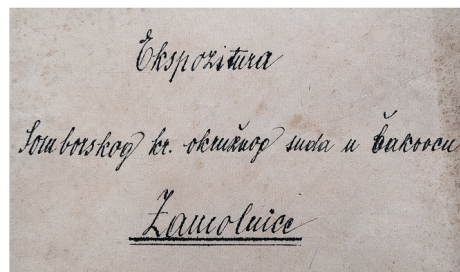 Ekspozitura
Somborskog kr. okružnog suda u Čakovcu
Zamolnice